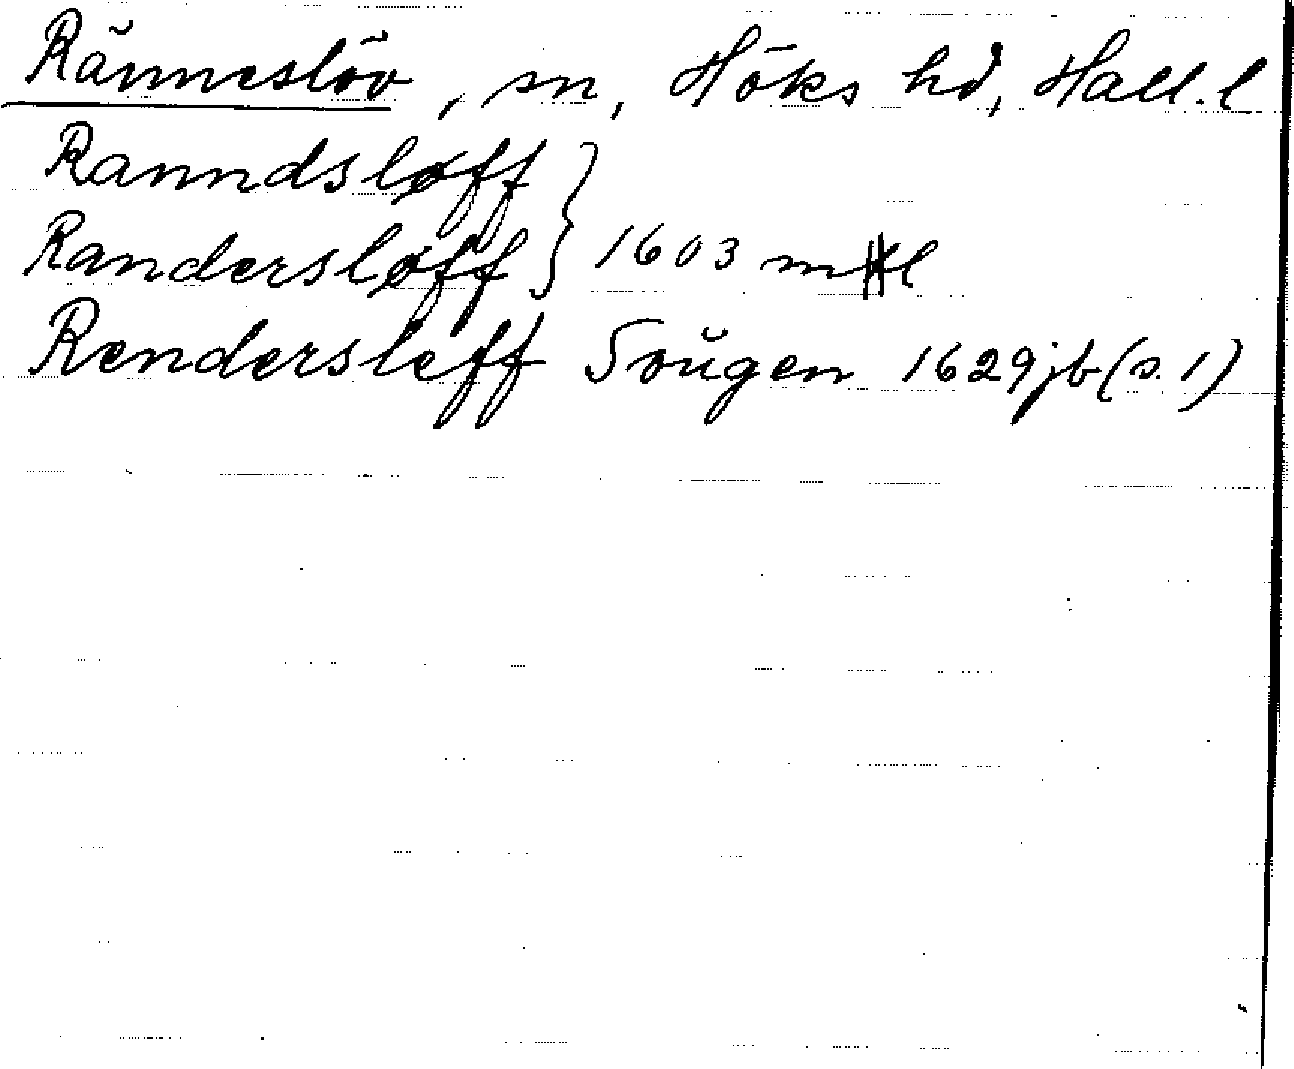 Ränneslöv, sn, Höks hd, Hall. l
Ranndsløff
Randersløff } 1603 mtl
Rendersleff Soŭgen 1629 jb (s. 1)